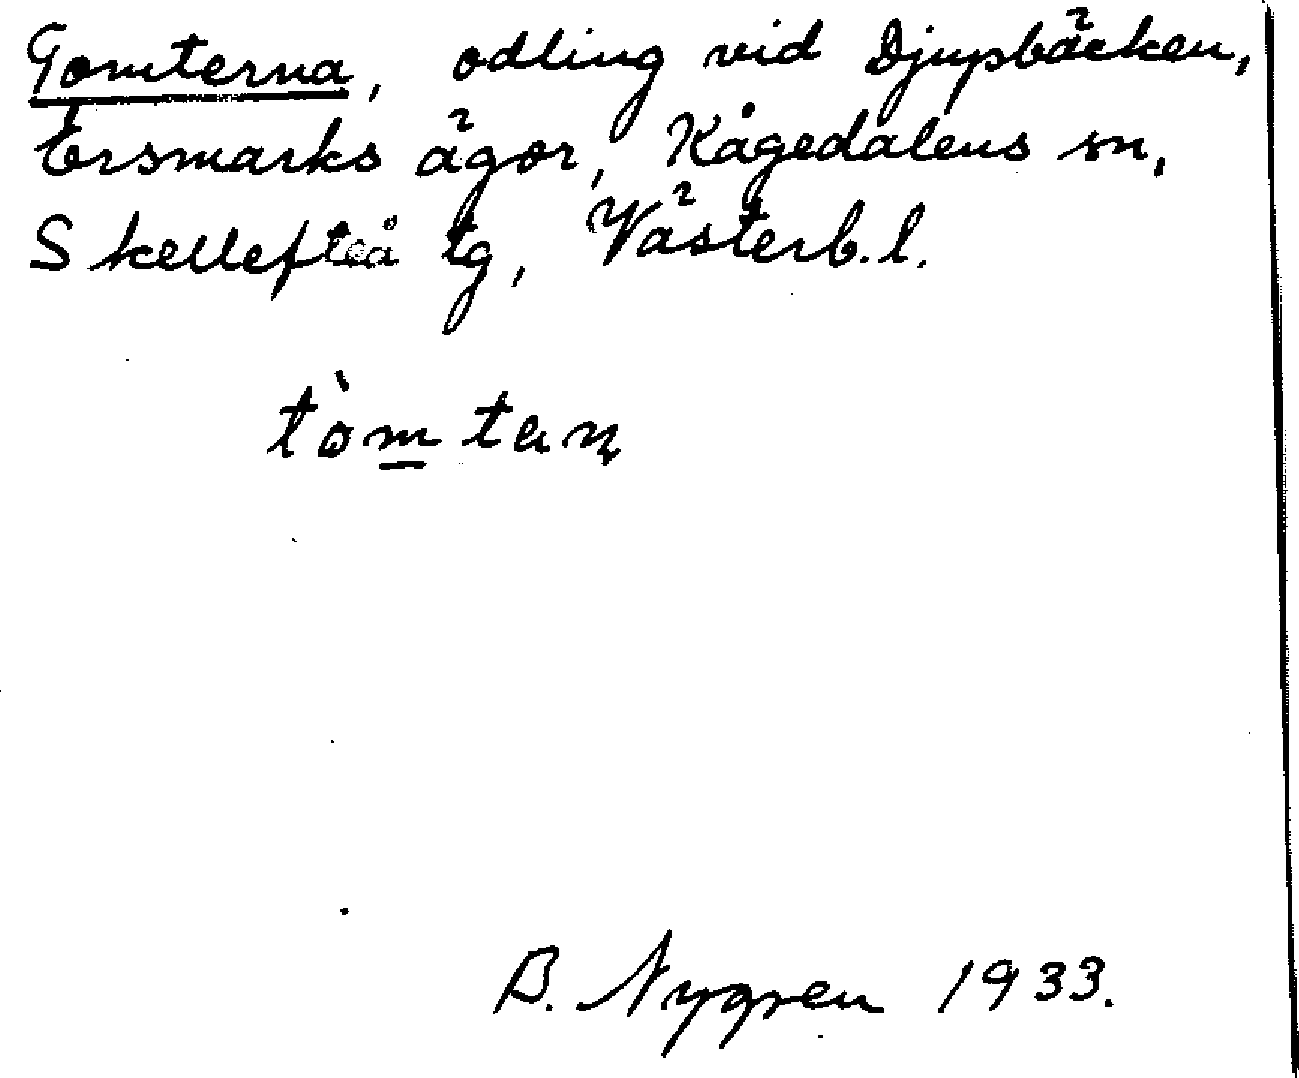 Tomterna, odling vid Djupbäcken,
Ersmarks ägor, Kågedalens sn,
Skellefteå tg, Västerb.l.
tòmtan
B. Nygren 1933.